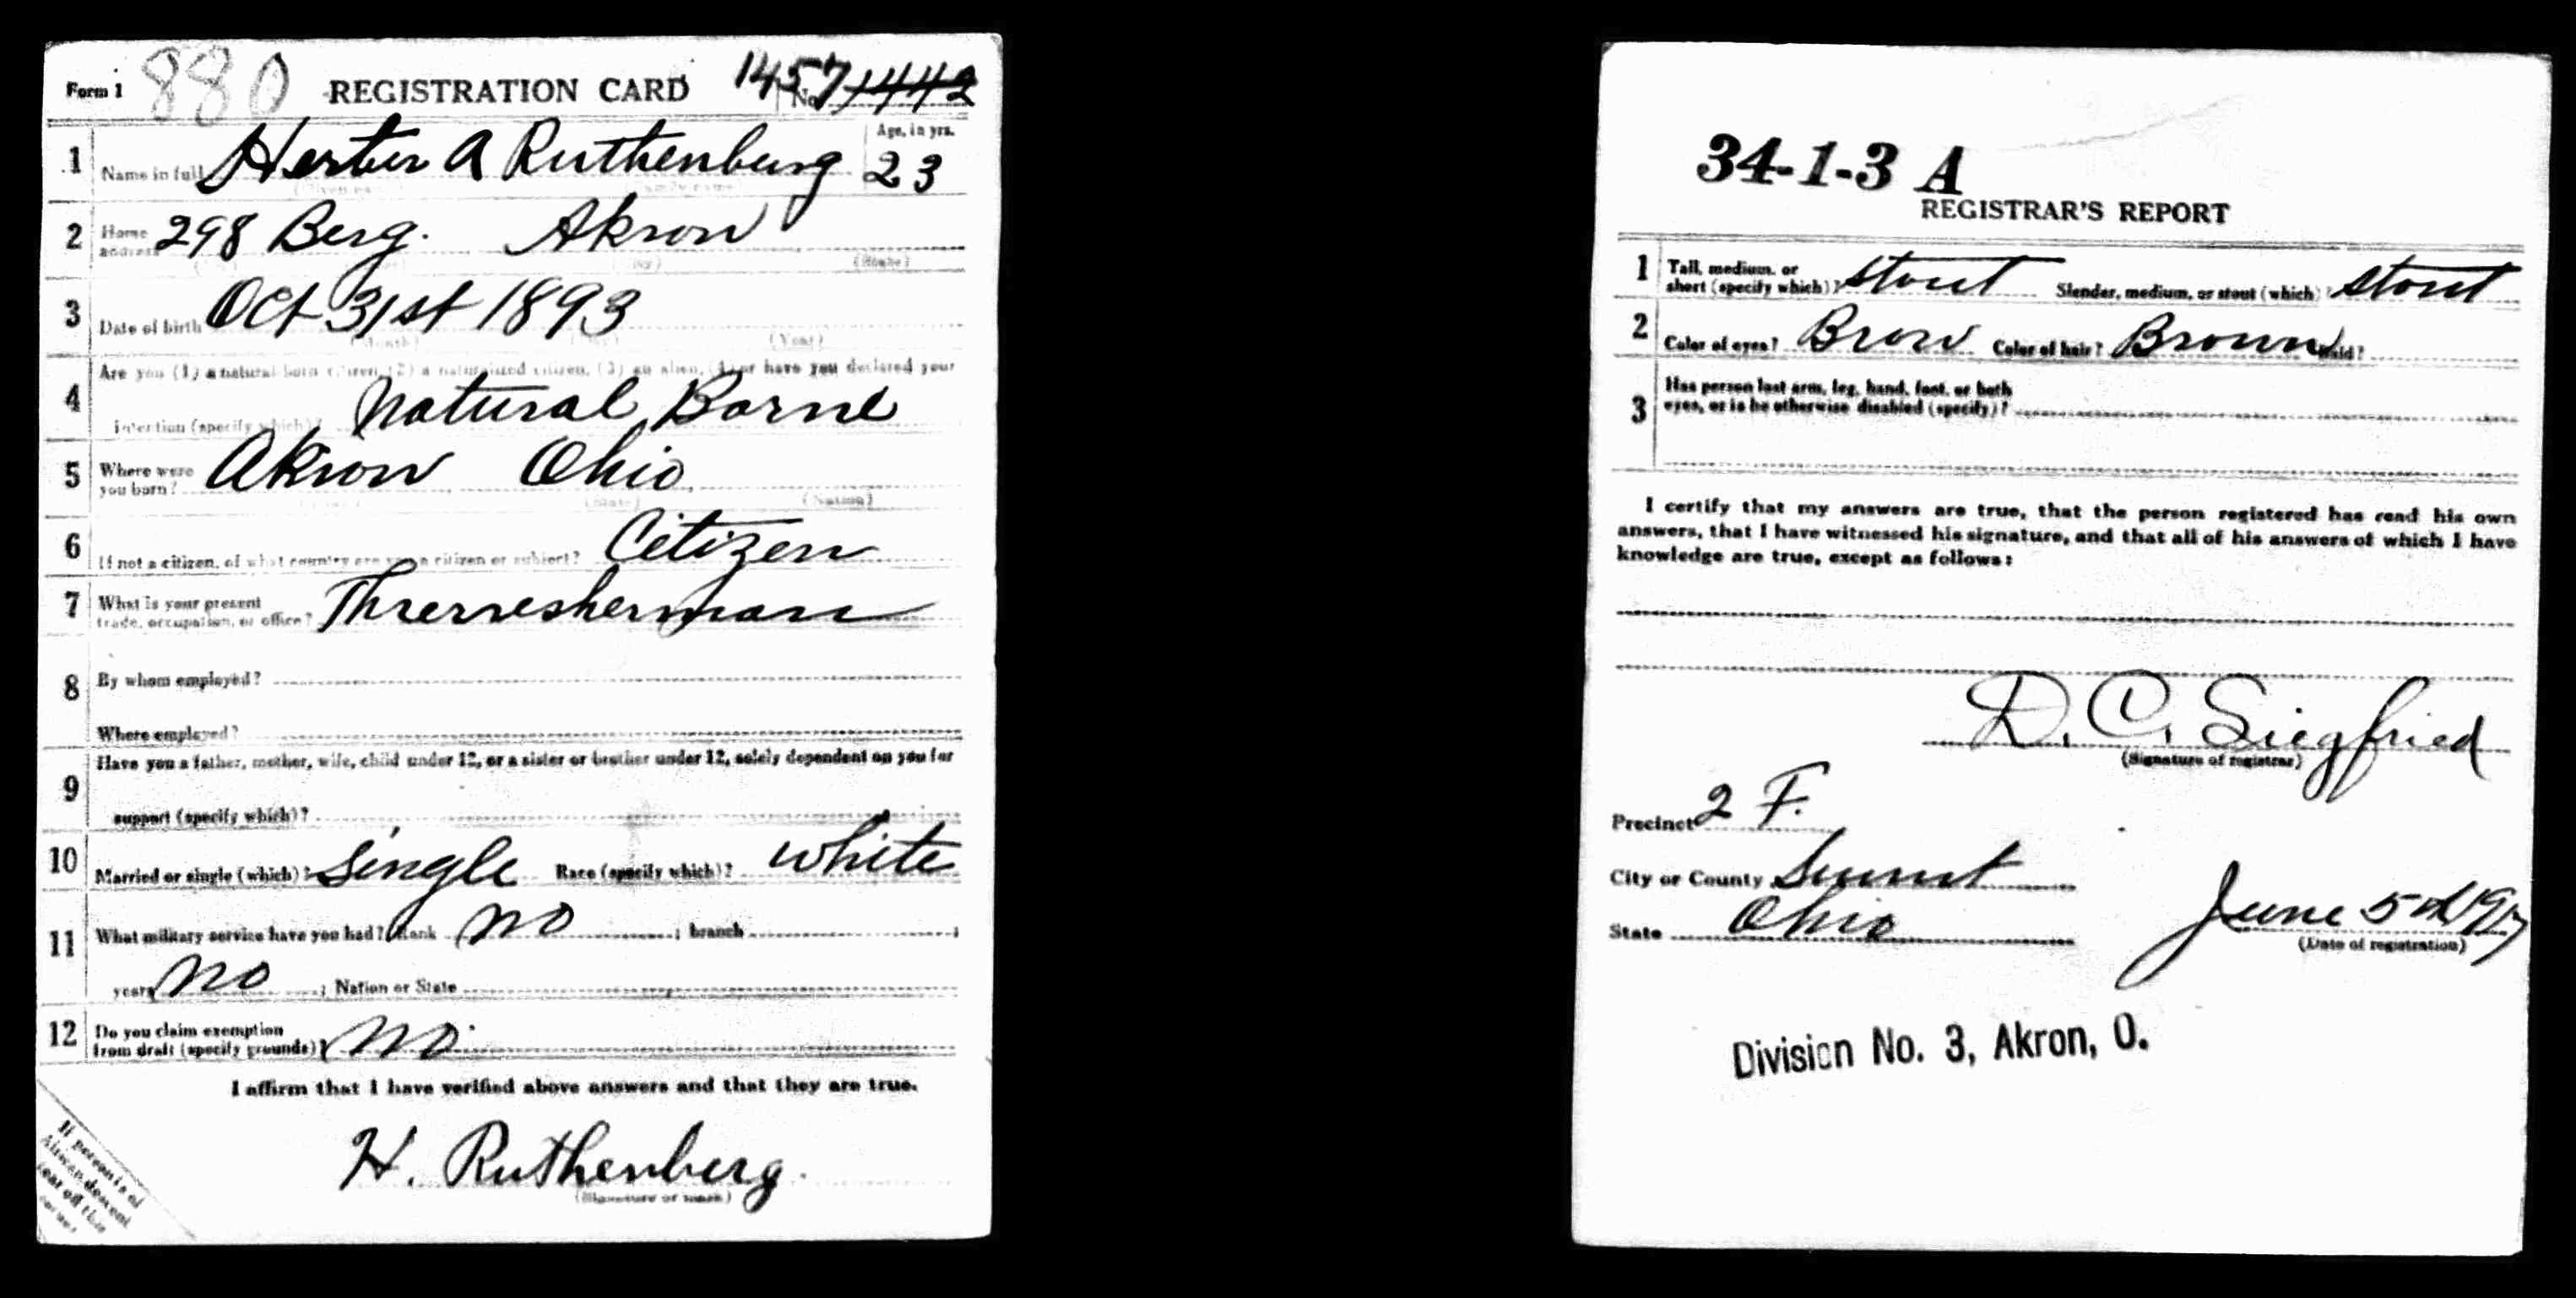 Form 1 880 REGISTRATION CARD 1457 No. 1442
1 Name in full Herber A Ruthenburg Age, in yrs. 23
2 Home address 298 Berg. Akron
(State)
3 Date of birth Oct 31st 1893
(Month) (Day) (Year)
4 Are you (1) a natural born citizen, (2) a naturalized citizen, (3) an alien, (4) or have you declared your
intention (specify which)? Natural Borne
5 Where were you born? Akron Ohio
(State) (Nation)
6 If not a citizen, of what country are you a citizen or subject? Citizen
7 What is your present trade, occupation, or office?
8 By whom employed?
Where employed?
9 Have you a father, mother, wife, child under 12, or a sister or brother under 12, solely dependent on you for
support (specify which)?
10 Married or single (which)? Single Race (specify which)? White
11 What military service have you had? Rank no ; branch ;
years no ; Nation or State
12 Do you claim exemption from draft (specify grounds)? no
I affirm that I have verified above answers and that they are true.
H. Ruthenberg
(Signature or mark)
If person is of
African descent
tear off this
corner
34-1-3 A
REGISTRAR'S REPORT
1 Tall, medium, or short (specify which)? stout Slender, medium, or stout (which)? stout
2 Color of eyes? Brow Color of hair? Brown Bald?
3 Has person lost arm, leg, hand, foot, or both
eyes, or is he otherwise disabled (specify)?
I certify that my answers are true, that the person registered has read his own
answers, that I have witnessed his signature, and that all of his answers of which I have
knowledge are true, except as follows:
D. C. Siegfried
(Signature of registrar)
Precinct 2 F.
City or County Summt
State Ohio June 5th 1917
(Date of registration)
Division No. 3, Akron, O.